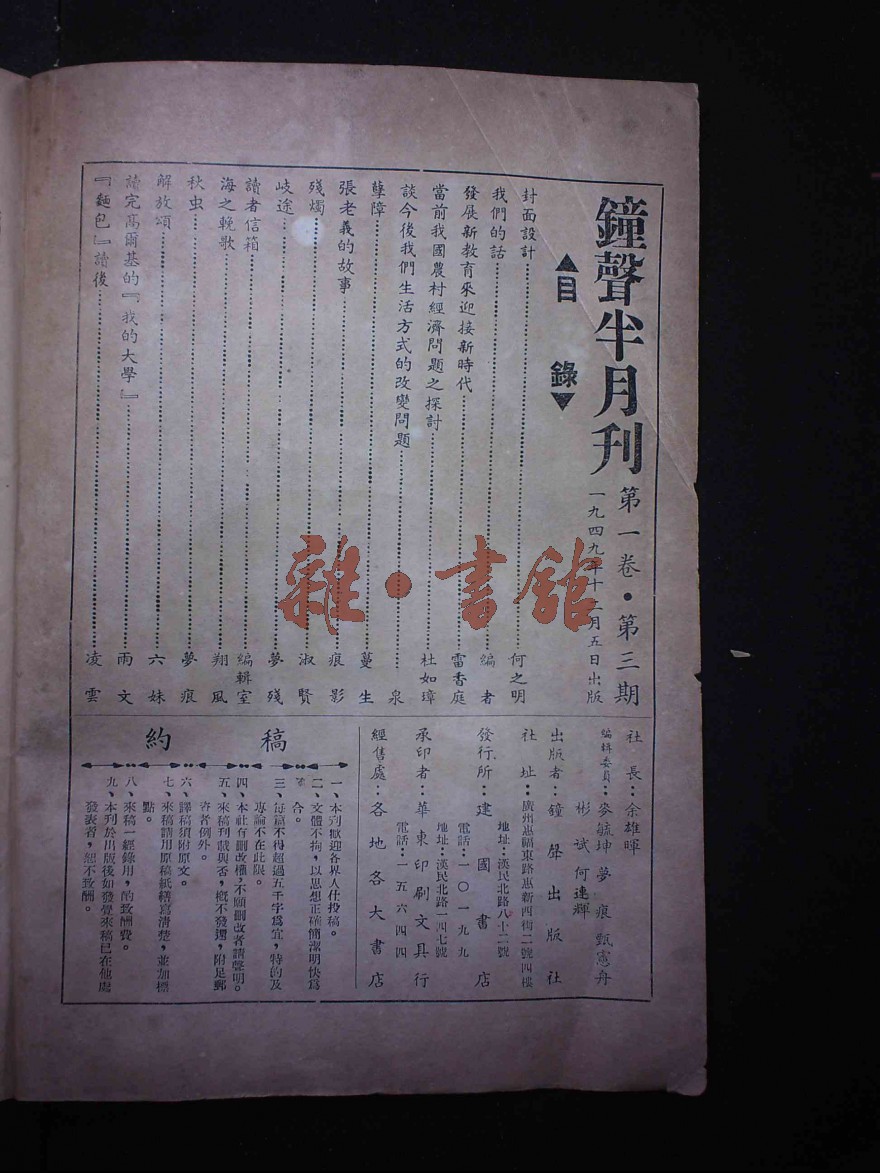 鐘聲半月刊
第一卷·第三期
一九四九年十二月五日出版
▲目 錄▼
封面設計……何之明
我們的話……編者
發展新教育來迎接新時代……雷香庭
當前我國農村經濟問題之探討……杜如璋
談今後我們生活方式的改變問題……泉
孽障……蔓生
張老義的故事……痕影
殘燭……淑賢
歧途……夢殘
讀者信箱……編輯室
海之輓歌……翔風
秋虫……夢痕
解放頌……六妹
讀完高爾基的『我的大學』……雨文
『麵包』讀後……凌雲
社 長：余雄暉
編輯委員：麥毓坤 夢痕 甄憲舟
彬 試 何達輝
出版者：鐘聲出版社
社 址：廣州惠福東路惠新四街二號四樓
發行所：建國書店
地址：漢民北路八十二號
電話：一〇一九九
承印者：華東印刷文具行
地址：漢民北路一四七號
電話：一五六四四
經售處：各地各大書店
稿 約
一、本刊歡迎各界人仕投稿。
二、文體不拘，以思想正確簡潔明快爲
合。
三、每篇不得超過五千字爲宜，特約及
專論不在此限。
四、本社有刪改權，不願刪改者請聲明。
五、來稿刊載與否，槪不發還，附足郵
咨者例外。
六、譯稿須附原文。
七、來稿請用原稿紙繕寫淸楚，並加標
點。
八、來稿一經錄用，酌致酬費。
九、本刊於出版後如發覺來稿已在他處
發表者，恕不致酬。
雜·書館